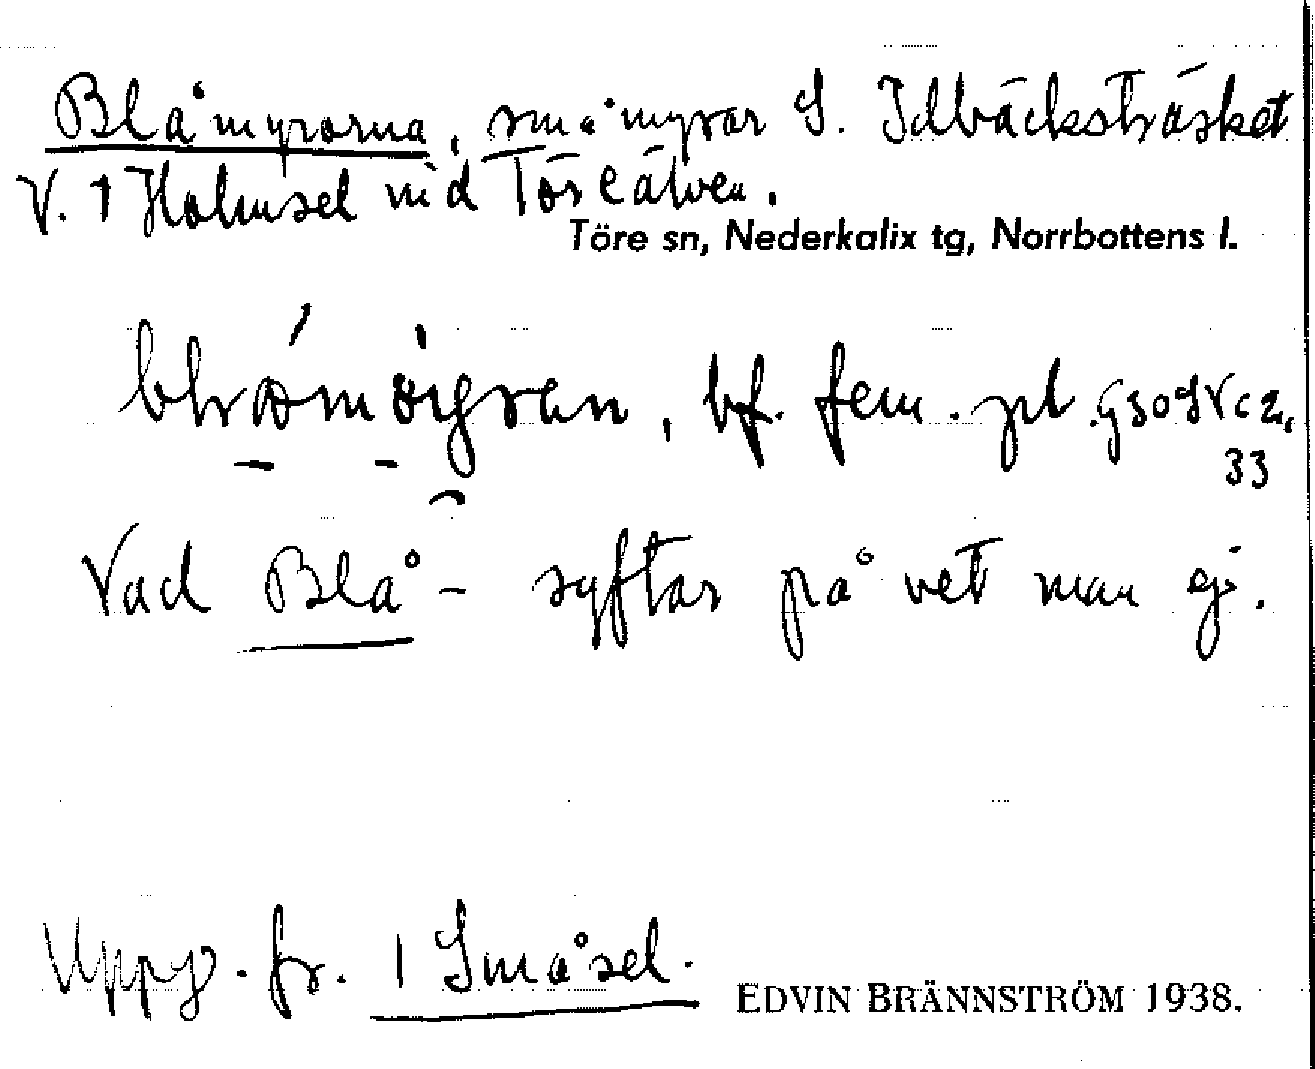 Blåmyrorna, småmyror S. Idbäcksträsket
V. 1 Holmsel vid Töreälven.
Töre sn, Nederkalix tg, Norrbottens l.
bf. fem. pl. G30SVc2,
33
Vad Blå- syftar på vet man ej.
Uppg. fr. 1 Småsel.
EDVIN BRÄNNSTRÖM 1938.